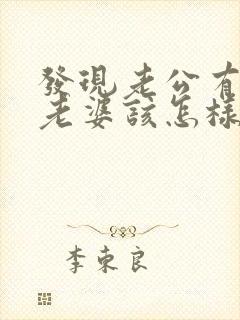 發現老公有
老婆該怎樣
李東良